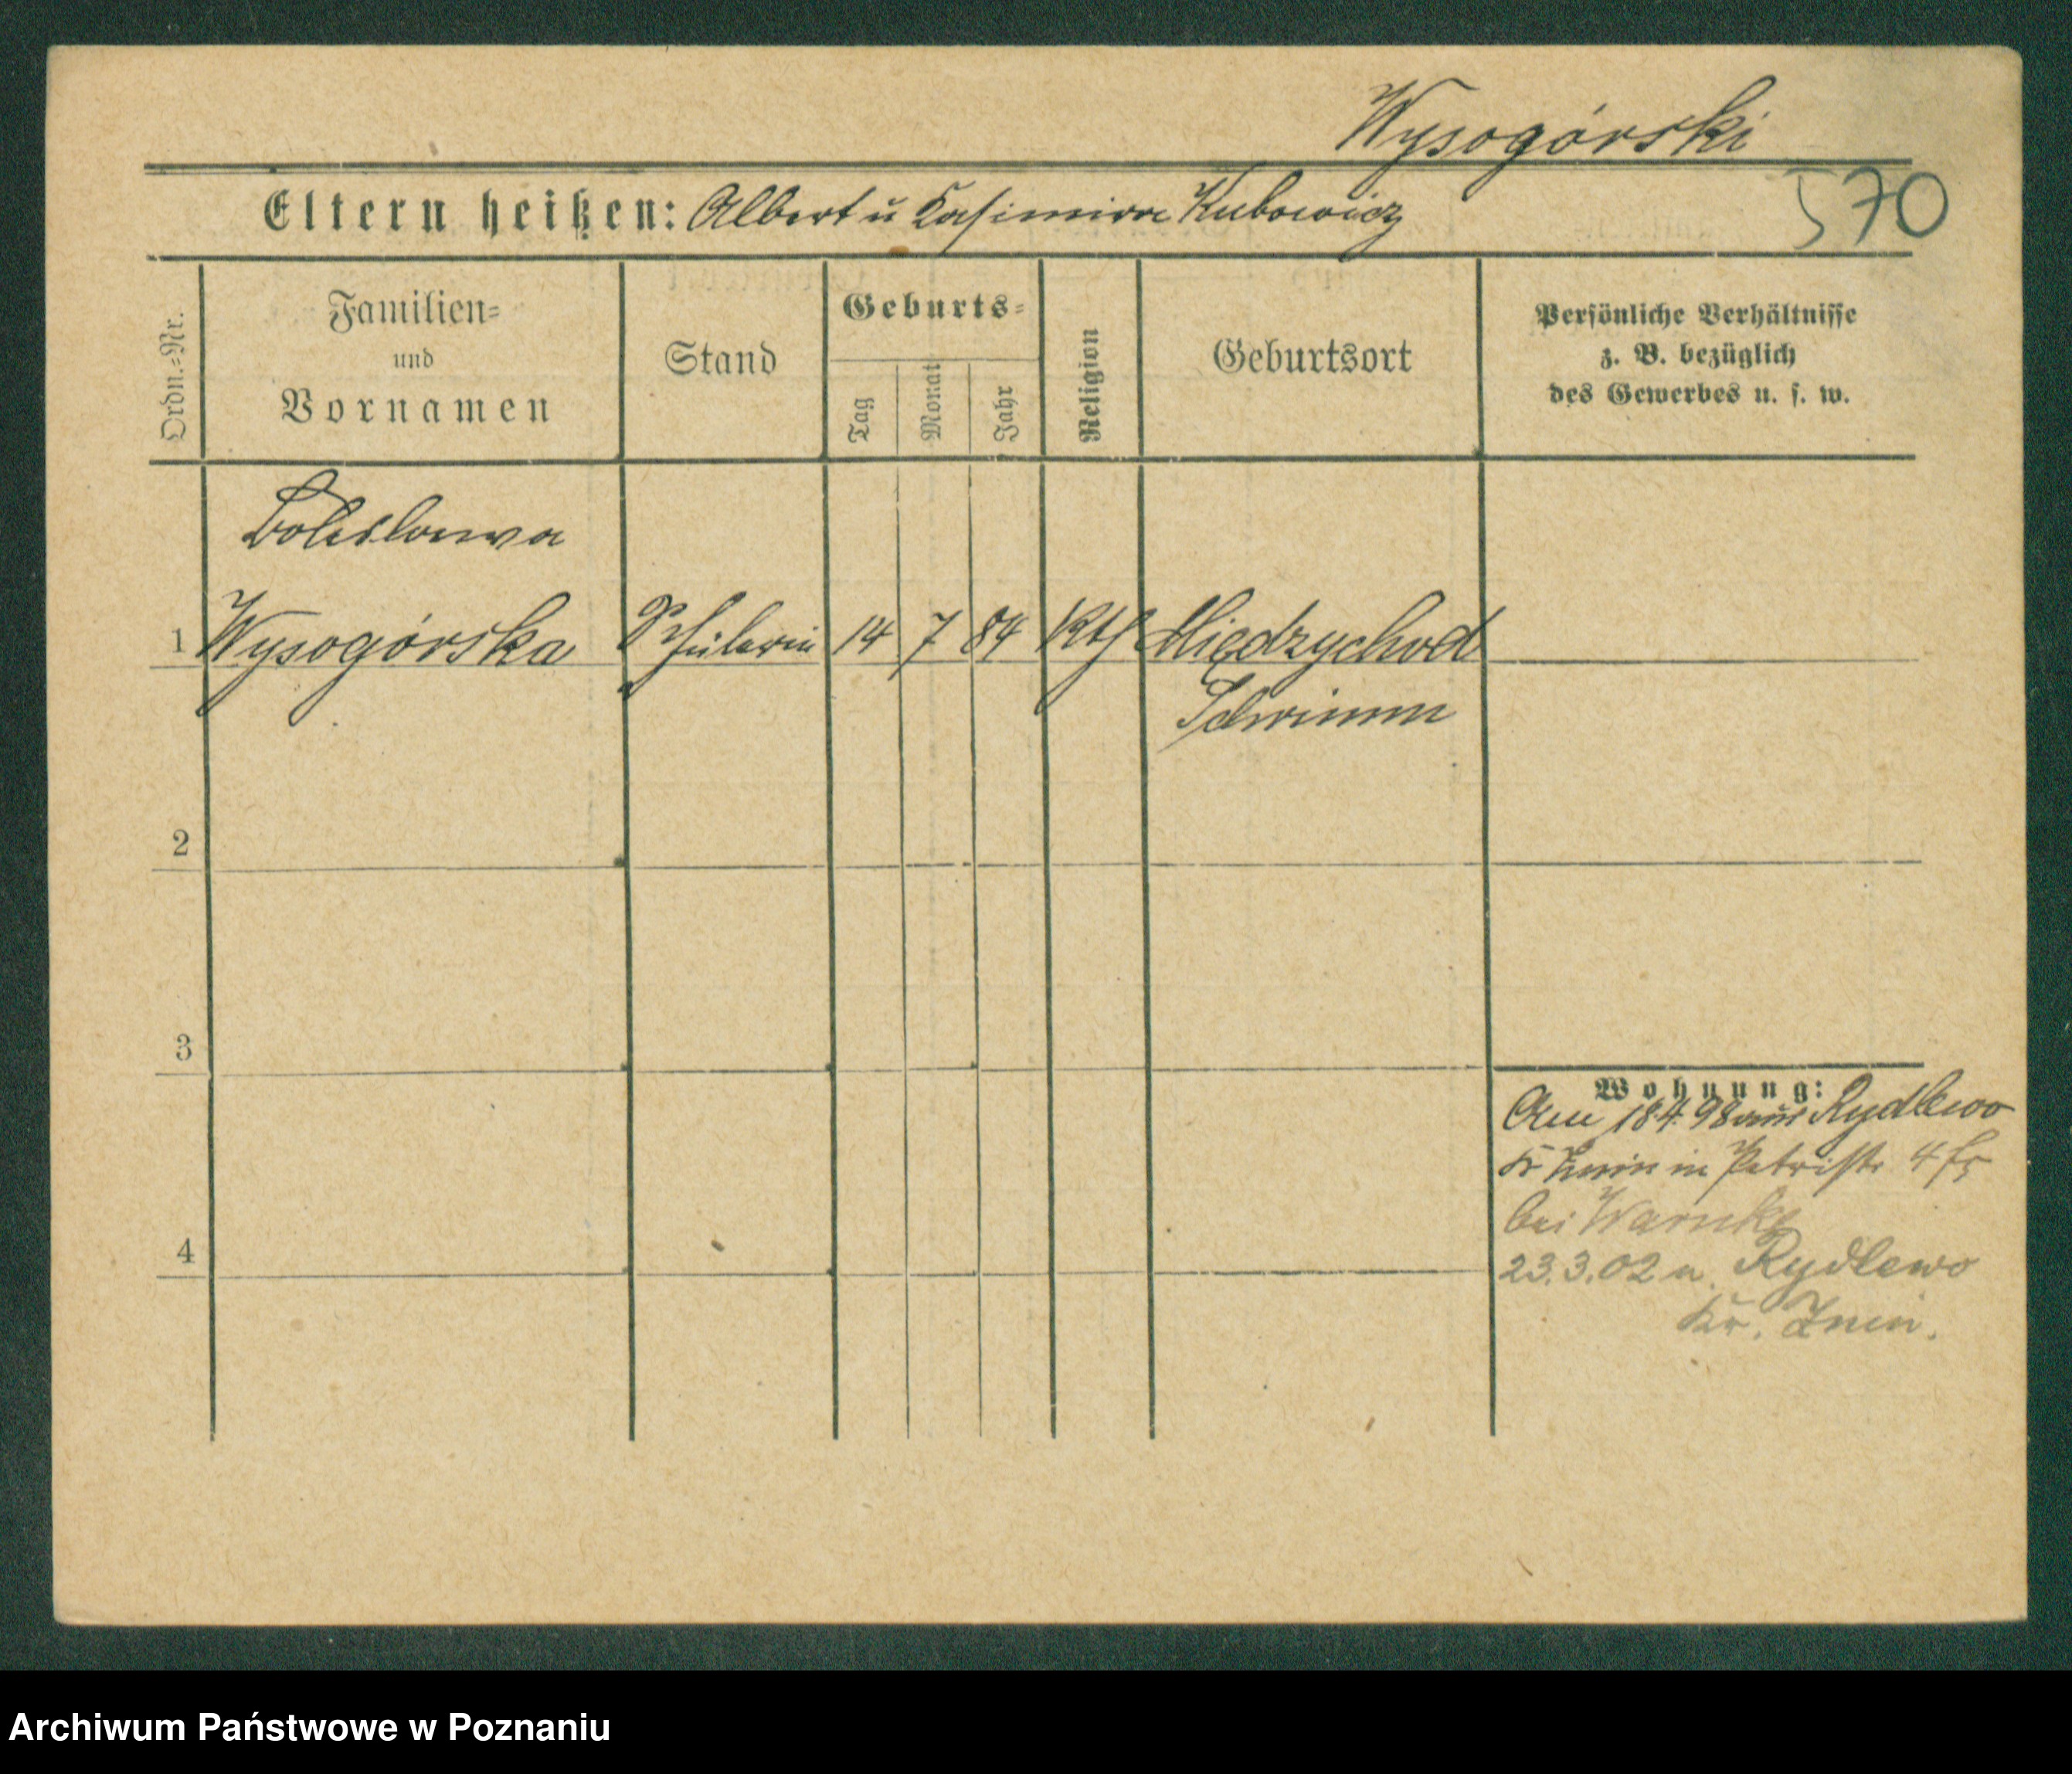 Wysogórski
570
Eltern heißen: Albert u Kasimira Kubowicz
Ordn.=Nr.
Familien=
und
Vornamen
Stand
Geburts=
Tag
Monat
Jahr
Religion
Geburtsort
Persönliche Verhältnisse
z. B. bezüglich
des Gewerbes u. s. w.
Boleslawa
1 Wysogórska Schülerin 14 7 84 Kth Międzychod
Schrimm
2
3
4
Wohnung:
Am 18.4.98 aus Rydlewo
Kr Znin in Petristr 4
bei Warnke
23.3.02 n. Rydlewo
Kr. Znin.
Archiwum Państwowe w Poznaniu